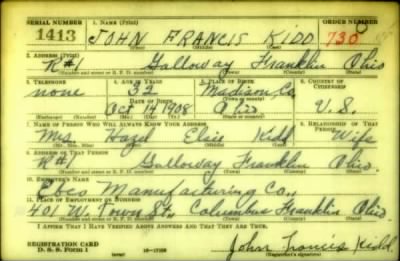 SERIAL NUMBER 1. NAME (Print) ORDER NUMBER
1413 JOHN FRANCIS KIDD 730
(First) (Middle) (Last)
2. ADDRESS (Print)
R#1 Galloway Franklin Ohio
(Number and street or R. F. D. number) (Town) (County) (State)
3. TELEPHONE 4. AGE IN YEARS 5. PLACE OF BIRTH 6. COUNTRY OF CITIZENSHIP
none 32 Madison Co. U.S.
DATE OF BIRTH (Town or county)
Oct 14 1908 Ohio
(Mo.) (Day) (Yr.) (State or country)
7. NAME OF PERSON WHO WILL ALWAYS KNOW YOUR ADDRESS 8. RELATIONSHIP OF THAT PERSON
Mrs. Hazel Elsie Kidd Wife
(Mr., Mrs., Miss) (First) (Middle) (Last)
9. ADDRESS OF THAT PERSON
R#1 Galloway Franklin Ohio.
(Number and street or R. F. D. number) (Town) (County) (State)
10. EMPLOYER'S NAME
Ebco Manufacturing Co.,
11. PLACE OF EMPLOYMENT OR BUSINESS
401 W. Town St., Columbus Franklin Ohio
(Number and street or R. F. D. number) (Town) (County) (State)
I AFFIRM THAT I HAVE VERIFIED ABOVE ANSWERS AND THAT THEY ARE TRUE.
REGISTRATION CARD
D. S. S. Form 1 16—17105 John Francis Kidd
(Registrant's signature)